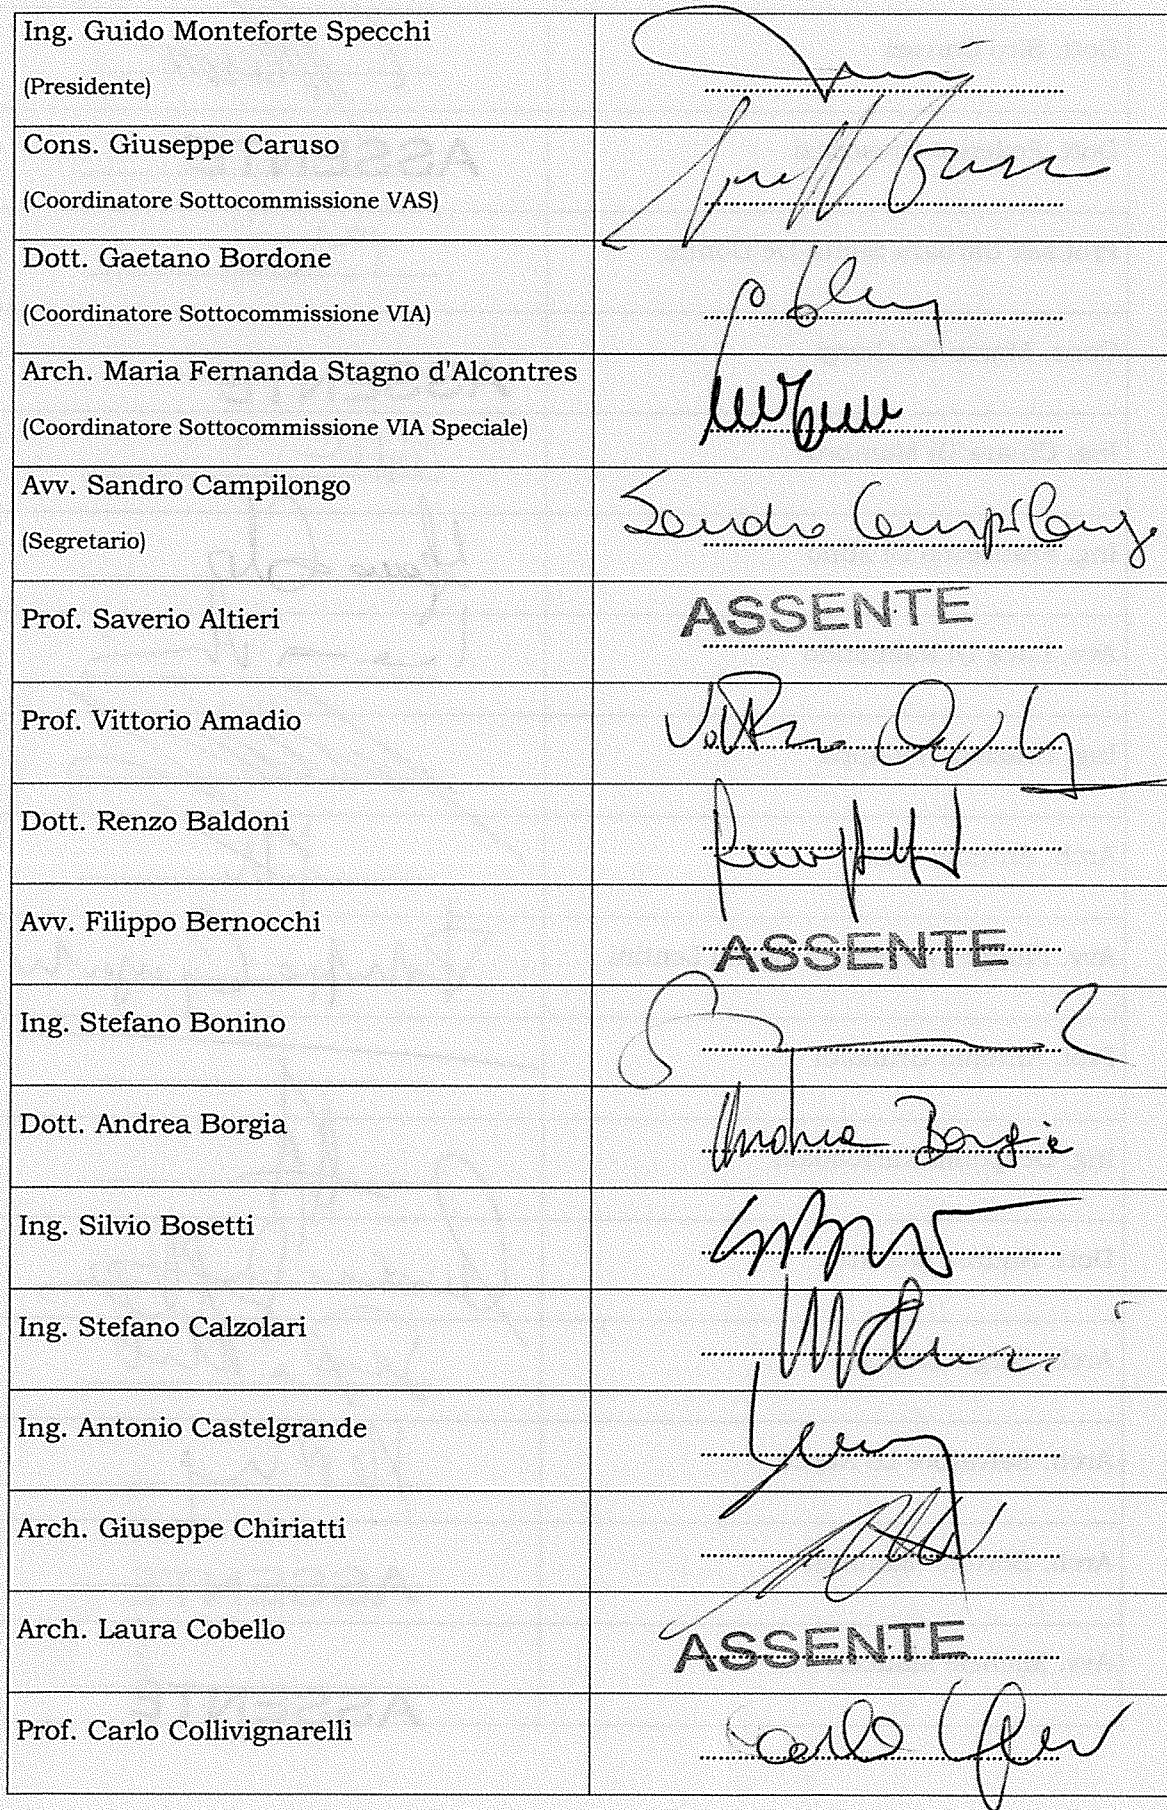 Ing. Guido Monteforte Specchi
(Presidente)
Cons. Giuseppe Caruso
(Coordinatore Sottocommissione VAS)
Dott. Gaetano Bordone
(Coordinatore Sottocommissione VIA)
Arch. Maria Fernanda Stagno d'Alcontres
(Coordinatore Sottocommissione VIA Speciale)
Avv. Sandro Campilongo
Sandro Campilongo
(Segretario)
Prof. Saverio Altieri
ASSENTE
Prof. Vittorio Amadio
Dott. Renzo Baldoni
Avv. Filippo Bernocchi
ASSENTE
Ing. Stefano Bonino
Dott. Andrea Borgia
Andrea Borgia
Ing. Silvio Bosetti
Ing. Stefano Calzolari
Ing. Antonio Castelgrande
Arch. Giuseppe Chiriatti
Arch. Laura Cobello
ASSENTE
Prof. Carlo Collivignarelli
Carlo